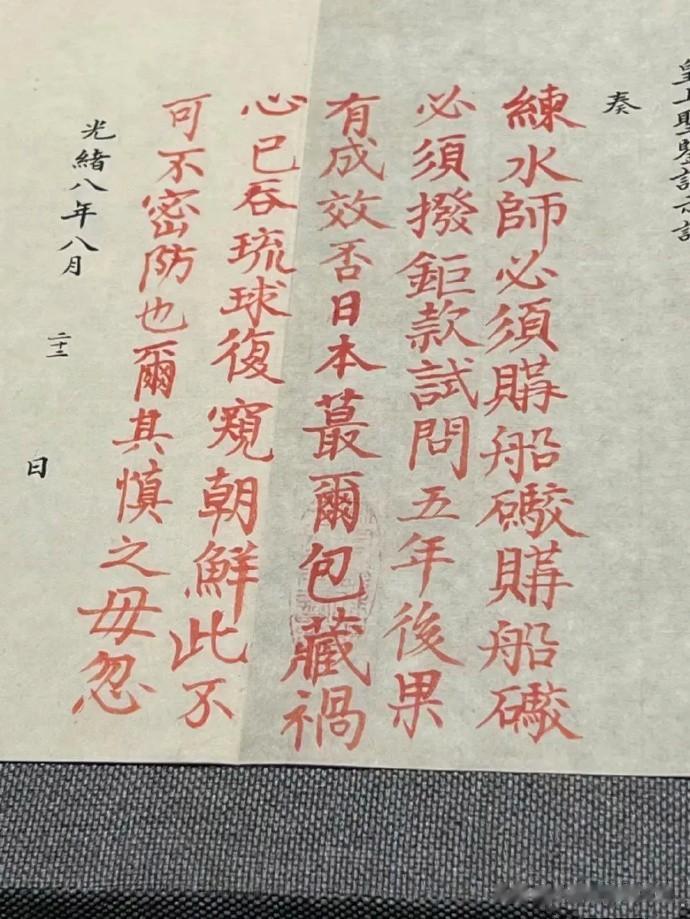 皇上聖鑒訓示謹
奏
練水師必須購船礮購船礮
必須撥鉅款試問五年後果
有成效否日本蕞爾包藏禍
心已吞琉球復窺朝鮮此不
可不密防也爾其慎之毋忽
光緒八年八月 二十二 日